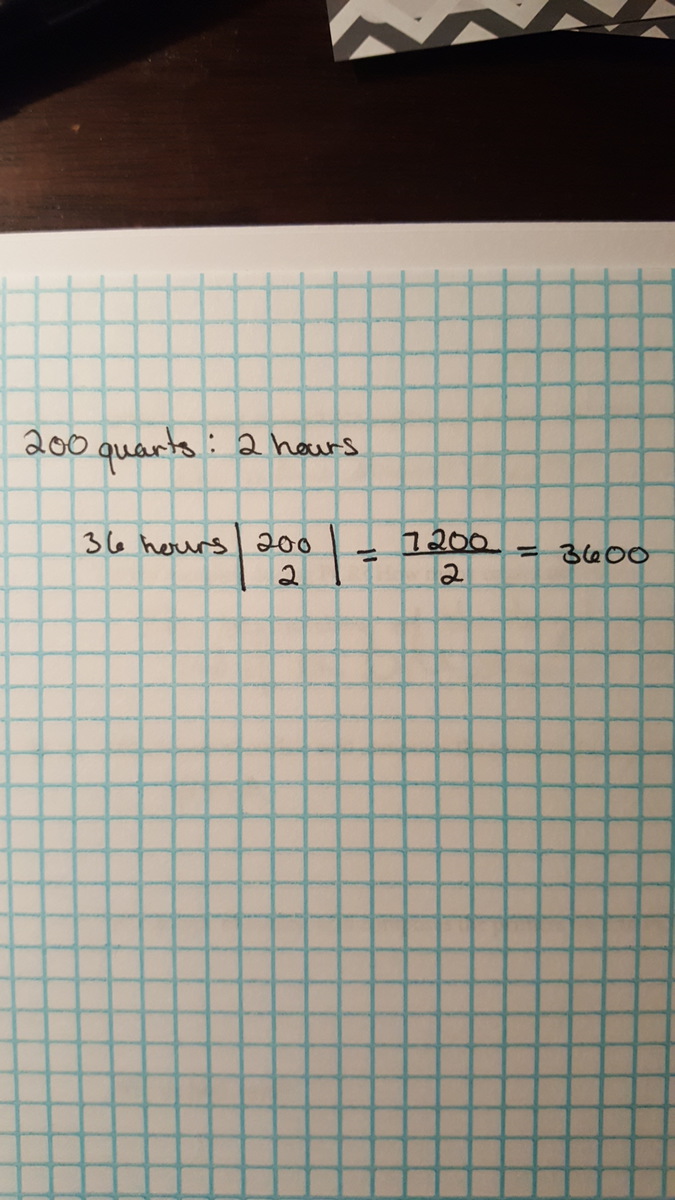 200 quarts : 2 hours
36 hours | 200 / 2 | = 7200 / 2 = 3600